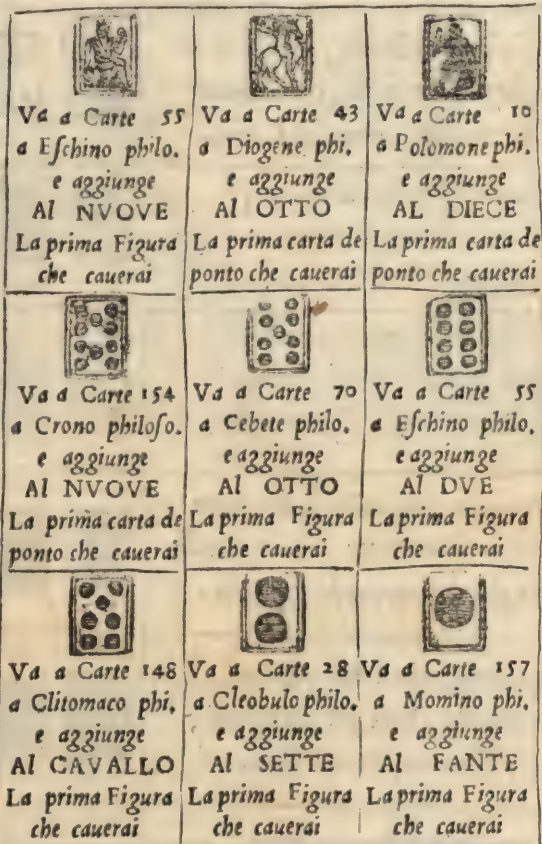 Va a Carte 55
a Eſchino philo.
e aggiunge
Al NVOVE
La prima Figura
che cauerai
Va a Carte 43
a Diogene phi.
e aggiunge
Al OTTO
La prima carta de
ponto che cauerai
Va a Carte 10
a Polomone phi.
e aggiunge
AL DIECE
La prima carta de
ponto che cauerai
Va a Carte 154
a Crono philoſo.
e aggiunge
Al NVOVE
La prima carta de
ponto che cauerai
Va a Carte 70
a Cebete philo.
e aggiunge
Al OTTO
La prima Figura
che cauerai
Va a Carte 55
a Eſchino philo.
e aggiunge
Al DVE
La prima Figura
che cauerai
Va a Carte 148
a Clitomaco phi.
e aggiunge
Al CAVALLO
La prima Figura
che cauerai
Va a Carte 28
a Cleobulo philo.
e aggiunge
Al SETTE
La prima Figura
che cauerai
Va a Carte 157
a Momino phi.
e aggiunge
Al FANTE
La prima Figura
che cauerai